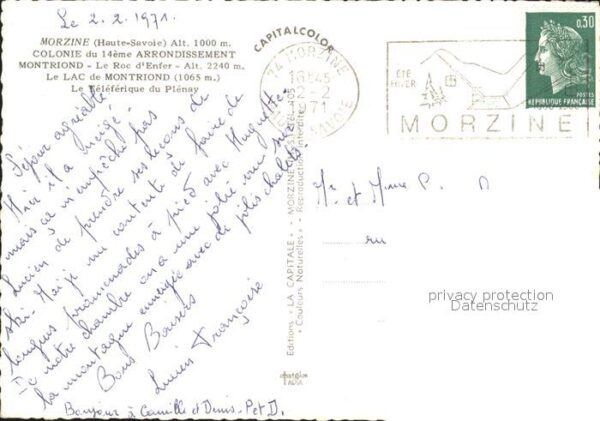 Le 2.2.1971.
MORZINE (Haute-Savoie) Alt. 1000 m.
COLONIE du 14ème ARRONDISSEMENT
MONTRIOND - Le Roc d'Enfer - Alt. 2240 m.
Le LAC de MONTRIOND (1065 m.)
Le Téléférique du Plénay
Séjour agréable.
Hier il a neigé
mais ça n'empêche pas
Lucien de prendre ses leçons de
ski. Moi je me contente de faire de
longues promenades à pied avec Huguette.
De notre chambre on a une jolie vue sur
la montagne enneigée avec de jolis chalets.
Bons Baisers
Lucien Françoise
Bonjour à Camille et Denis - P et D.
CAPITALCOLOR
Editions « LA CAPITALE » - MORZINE
« Couleurs Naturelles » - Reproduction interdite
74 MORZINE
16H45
2-2
1971
HAUTE-SAVOIE
ETE
HIVER
MORZINE
0,30
POSTES
REPUBLIQUE FRANÇAISE
Mr et Mme P. D
ru
privacy protection
Datenschutz